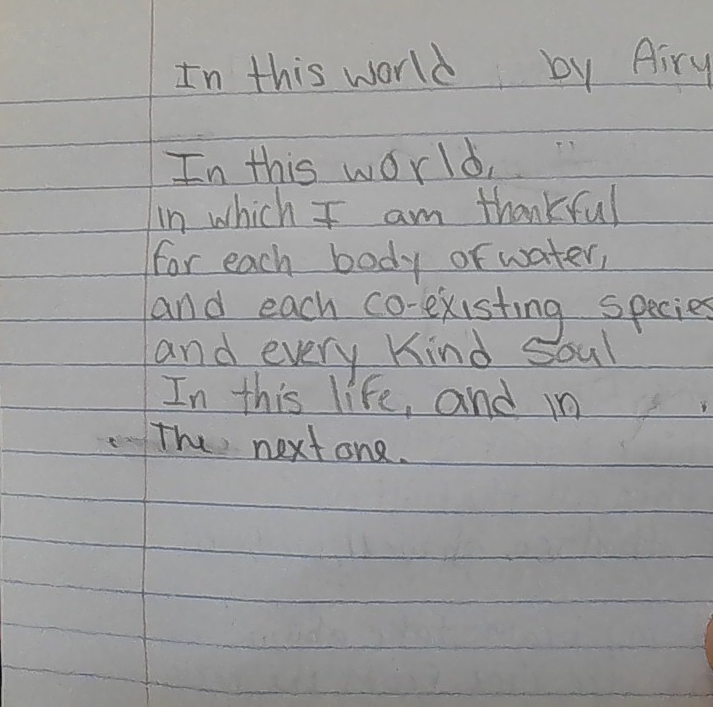 In this world by Airy
In this world,
in which I am thankful
for each body of water,
and each co-existing species
and every Kind Soul
In this life, and in
The next one.